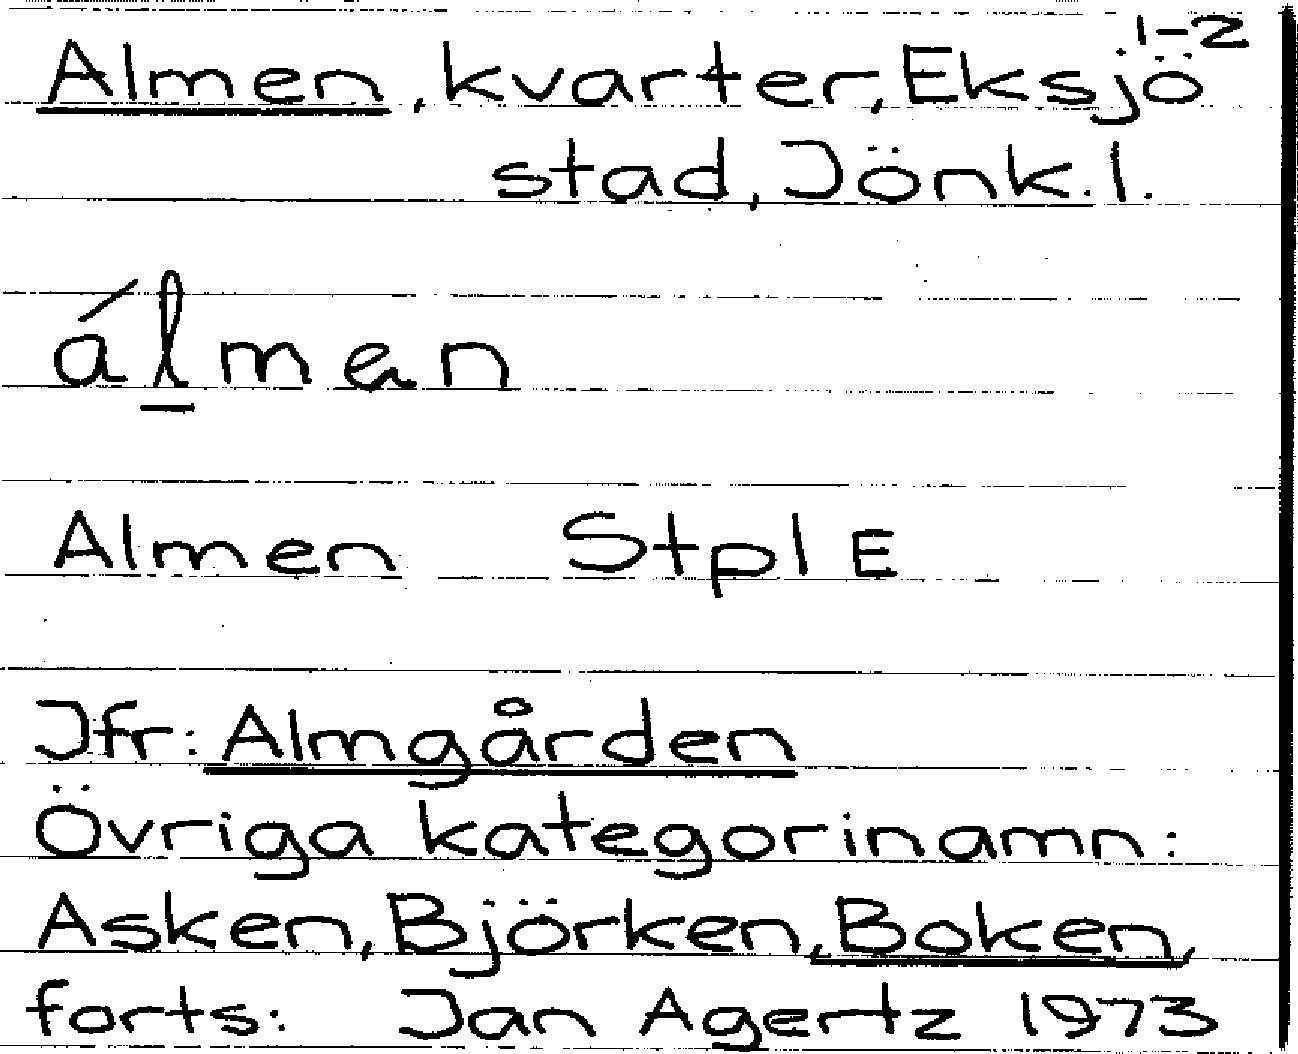 1-2
Almen, kvarter, Eksjö
stad, Jönk.l.
álmən
Almen Stpl E
Jfr: Almgården
Övriga kategorinamn:
Asken, Björken, Boken,
forts: Jan Agertz 1973